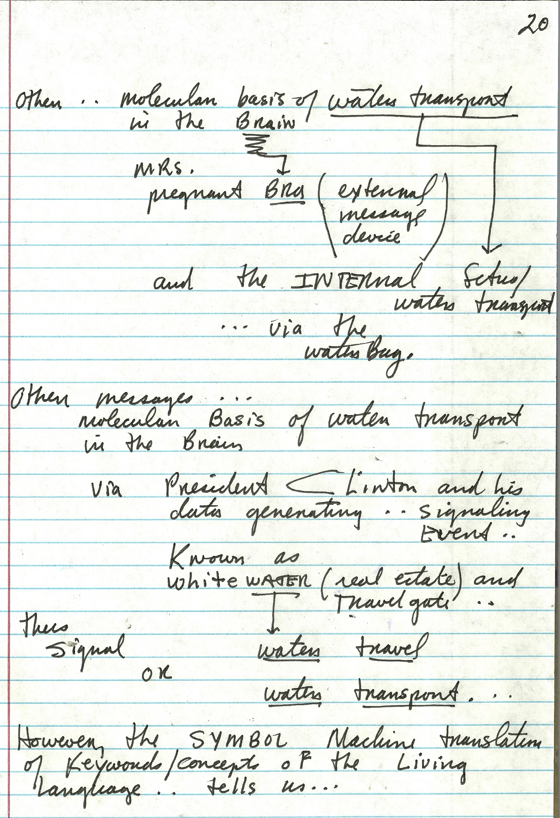 20
Other .. molecular basis of water transport
in the Brain
MRS.
pregnant Bra (external
message
device)
and the INTERNAL fetus/
water transport
... via the
water Bag.
Other messages ...
molecular Basis of water transport
in the Brain
via President Clinton and his
data generating .. signaling
Event ..
Known as
white WATER (real estate) and
Travelgate ..
thus
signal water travel
OR
water transport. ...
However, the SYMBOL Machine translation
of Keywords/concepts of the Living
Language .. tells us...